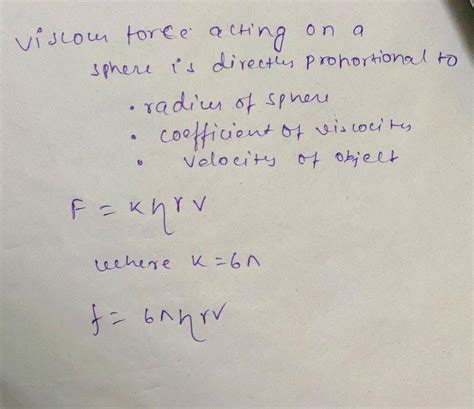 viscous force acting on a
sphere is directly proportional to
• radius of sphere
• coefficient of viscocity
• velocity of object
F = kηrv
where k = 6π
f = 6πηrv